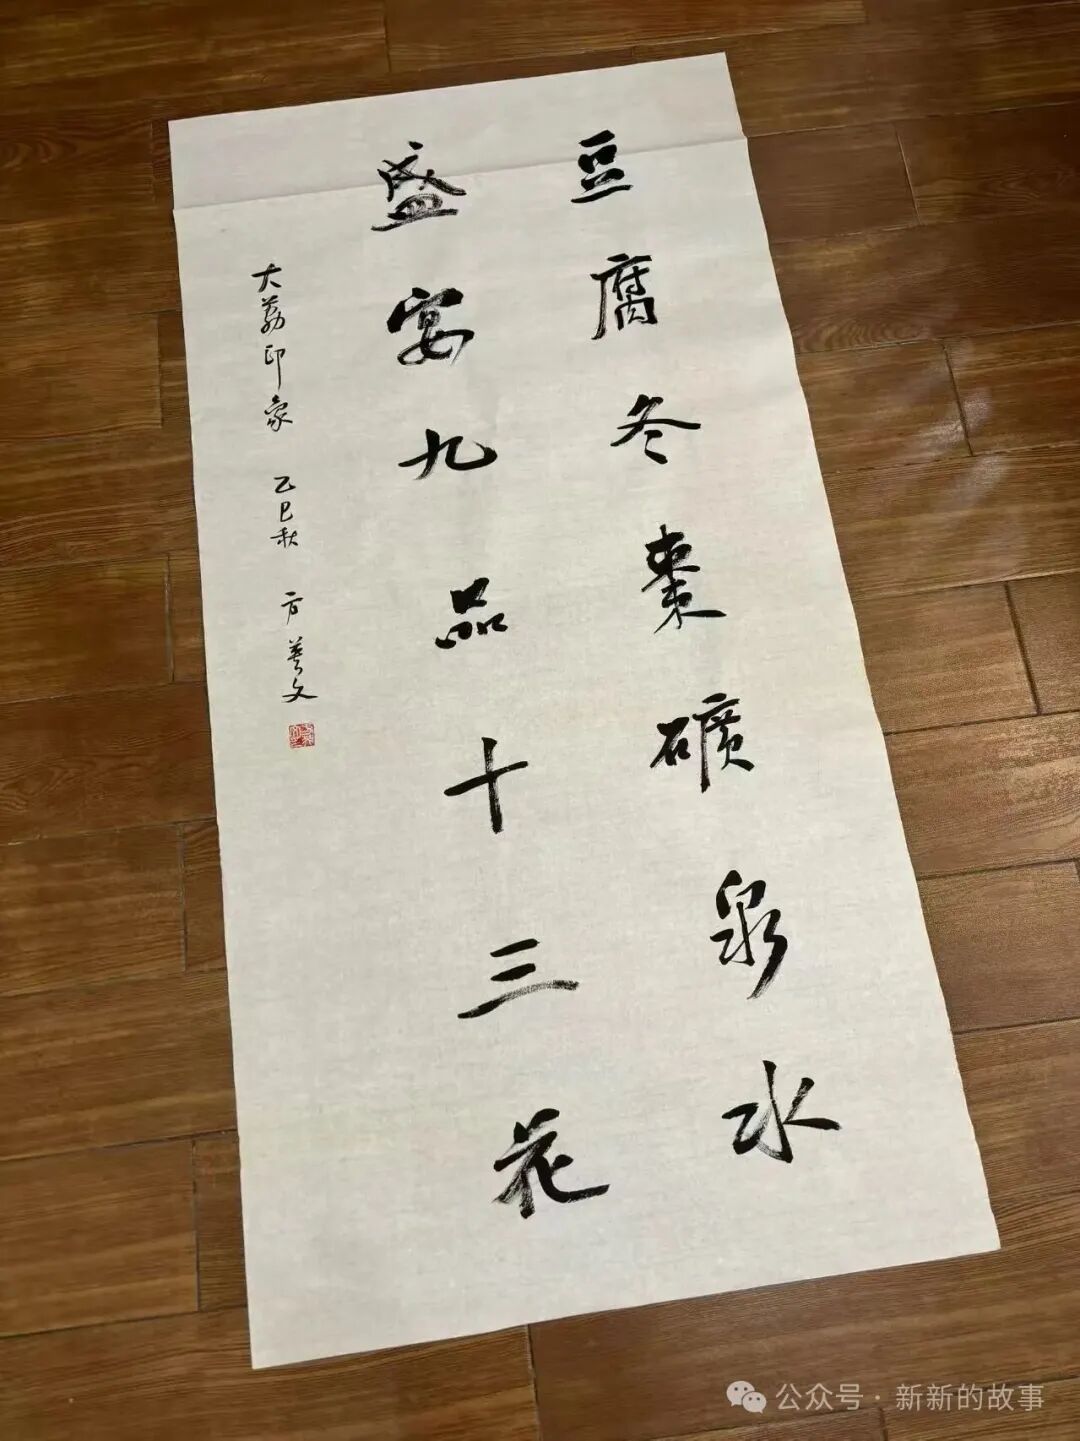 豆腐冬棗礦泉水
盛宴九品十三花
大荔印象 乙巳秋 方英文
公众号·新新的故事